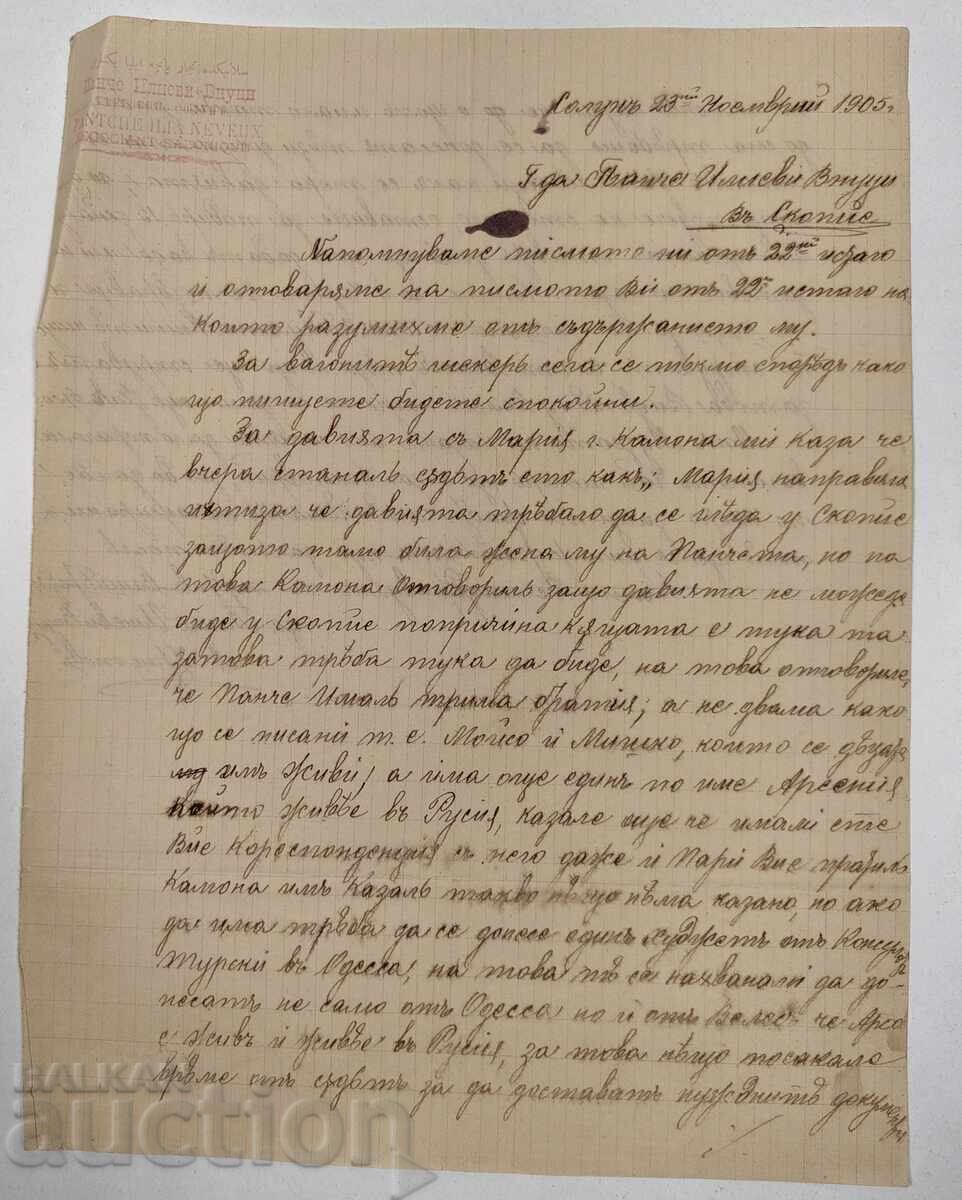 анчо Илиеви Внуци
NTCHE ILIA NEVEUX
Солунъ 23ий Ноемврий 1905г
Г да Панче Илиеви Внуци
Въ Скопие
Напомнуваме писмото ни отъ 22ий истаго
и отговаряме на писмото Ви отъ 22й истаго на
което разумихме отъ съдържанието му.
За вагонитѣ шекеръ сега се тъкмо споредъ како
що пишуете бидете спокойни.
За давията съ Мария г. Камона ми каза че
вчера станалъ сѫдътъ ето какъ„ Мария направила
итиза че давията трѣбало да се глѣда у Скопие
защото тамо била жена му на Панчета, но на
това Камона отговорилъ защо давията не може да
биде у Скопие попричина кѫщата е тука та
затова трѣба тука да биде, на това отговориле,
че Панче Ималъ трима братия; а не двама како
що се писани т. е. Мойсо и Мишко, които се дѣцата
имъ живи, а има още единъ по име Арсения
който живѣе въ Русия, казале още че имали сте
Вие Кореспонденция съ него даже и Пари Вие пратилъ
Камона имъ Казалъ такво нѣщо нѣма казано, но ако
да има трѣба да се донесе единъ худжетъ отъ Консулъ
Турски въ Одесса, на това тѣ се нахванали да до-
несатъ не само отъ Одесса но и отъ Велес - че Арсо
е живъ и живѣе въ Русия, за това нѣщо посакале
врѣме отъ сѫдътъ за да доставатъ нужднитѣ документи
BALKAN
auction